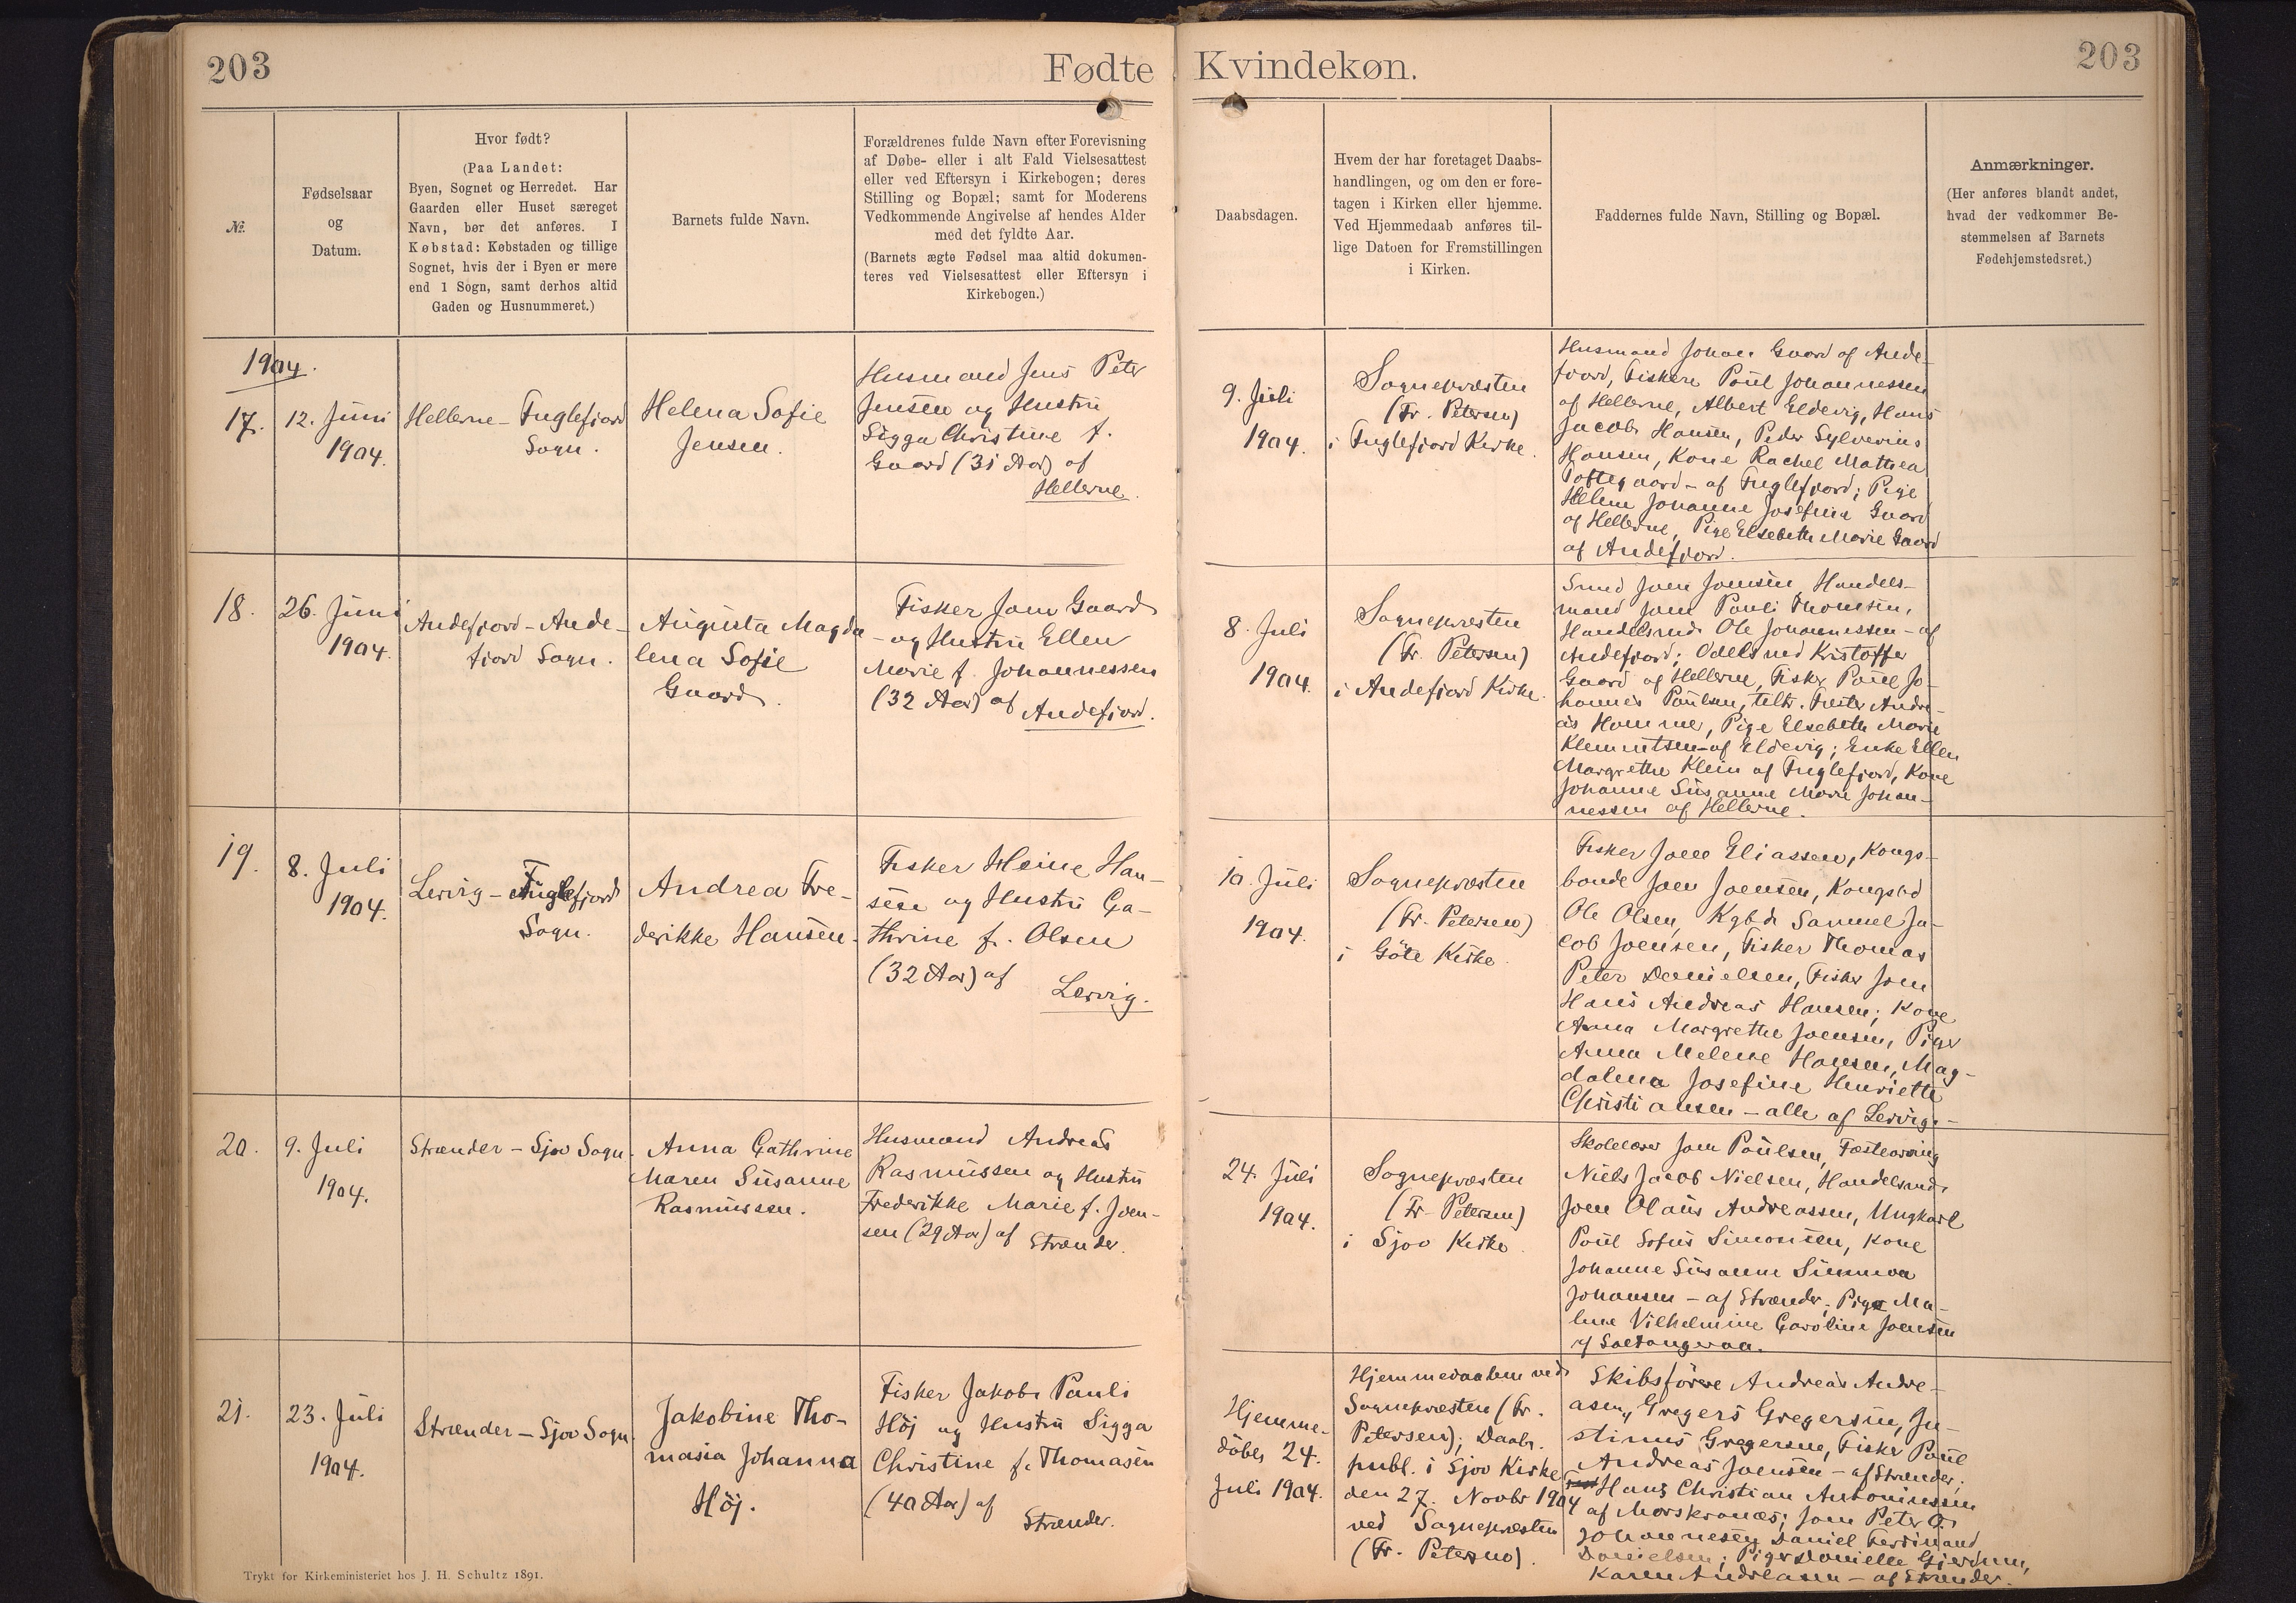 203
Fødte
Kvindekøn.
203
№.
Fødselsaar
og
Datum.
Hvor født?
(Paa Landet:
Byen, Sognet og Herredet. Har
Gaarden eller Huset særeget
Navn, bør det anføres. I
Købstad: Købstaden og tillige
Sognet, hvis der i Byen er mere
end 1 Sogn, samt derhos altid
Gaden og Husnummeret.)
Barnets fulde Navn.
Forældrenes fulde Navn efter Forevisning
af Døbe- eller i alt Fald Vielsesattest
eller ved Eftersyn i Kirkebogen; deres
Stilling og Bopæl; samt for Moderens
Vedkommende Angivelse af hendes Alder
med det fyldte Aar.
(Barnets ægte Fødsel maa altid dokumen-
teres ved Vielsesattest eller Eftersyn i
Kirkebogen.)
Daabsdagen.
Hvem der har foretaget Daabs-
handlingen, og om den er fore-
tagen i Kirken eller hjemme.
Ved Hjemmedaab anføres til-
lige Datoen for Fremstillingen
i Kirken.
Faddernes fulde Navn, Stilling og Bopæl.
Anmærkninger.
(Her anføres blandt andet,
hvad der vedkommer Be-
stemmelsen af Barnets
Fødehjemstedsret.)
1904.
17.
12. Juni
1904.
Hellerne - Fuglefjord
Sogn.
Helena Sofie
Jensen.
Husmand Jens Peter
Jensen og Hustru
Sigga Christine f.
Gaard (31 Aar) af
Hellerne.
9. Juli
1904.
Sognepræsten
(Fr. Petersen)
i Fuglefjord Kirke.
Husmand Johan Gaard af Ande-
fjord, Fiskere Poul Johannessen
af Hellerne, Albert Eldevig, Hans
Jacob Hansen, Peder Sylverius
Hansen, Kone Rachel Mathea
Toftegaard - af Fuglefjord; Pige
Helene Johanne Josefine Gaard
af Hellerne, Pige Elsebeth Marie Gaard
af Andefjord.
18.
26. Juni
1904.
Andefjord - Ande-
fjord Sogn.
Augusta Magda
lena Sofie
Gaard.
Fisker Joen Gaard
og Hustru Ellen
Marie f. Johannessen
(32 Aar) af
Andefjord.
8. Juli
1904.
Sognepræsten
(Fr. Petersen)
i Andefjord Kirke.
Smed Joen Joensen, Handels-
mand Joen Pauli Thomsen,
Handelsmd. Ole Johannessen - af
Andefjord; Odelsmd Kristoffer
Gaard af Hellerne, Fisker Poul Jo-
hannes Poulsen, Fæster Andre-
as Hammer, Pige Elsebeth Marie
Klementsen - af Eldevig; Enke Ellen
Margrethe Klein af Fuglefjord, Kone
Johanne Susanne Marie Johan-
nessen af Hellerne.
19.
8. Juli
1904.
Lervig - Fuglefjord
Sogn.
Andrea Fre-
derikke Hansen.
Fisker Heine Han-
sen og Hustru Ca-
thrine f. Olsen
(32 Aar) af
Lervig.
10. Juli
1904.
Sognepræsten
(Fr. Petersen)
i Göte Kirke.
Fisker Joen Eliassen, Kongs-
bonde Joen Joensen, Kongsbd
Ole Olsen, Kgbd. Samuel Ja-
cob Joensen, Fisker Thomas
Peter Danielsen, Fisker Joen
Hans Andreas Hansen; Kone
Anna Margrethe Joensen, Piger
Anna Melene Hansen, Mag-
dalena Josefine Henriette
Christiansen - alle af Lervig. -
20.
9. Juli
1904.
Strænder - Sjov Sogn.
Anna Cathrine
Maren Susanne
Rasmussen.
Husmand Andreas
Rasmussen og Hustru
Frederikke Marie f. Joen-
sen (29 Aar) af Strænder.
24. Juli
1904.
Sognepræsten
(Fr. Petersen)
i Sjov Kirke.
Skolelærer Joen Poulsen,
Niels Jacob Nielsen, Handelsmd.
Joen Olaus Andreassen, Ungkarl
Poul Sofus Simonsen, Kone
Johanne Susanne Sunneva
Johansen - af Strænder; Pige Ma-
lene Vilhelmine Caroline Joensen
af Saltangeraa.
21.
23. Juli
1904.
Strænder - Sjov Sogn
Jakobine Tho-
masia Johanna
Höj.
Fisker Jakob Pauli
Höj og Hustru Sigga
Christine f. Thomasen
(40 Aar) af
Strænder.
Hjemme-
döbt 24.
Juli 1904.
Hjemmedaaben ved
Sognepræsten (Fr.
Petersen); Daab.
publ. i Sjov Kirke
den 27. Novbr 1904
ved Sognepræsten
(Fr. Petersen).
Skibsförere Andreas Andre-
asen, Gregers Gregersen, Ju-
stinus Gregersen, Fisker Poul
Andreas Joensen - af Strænder;
Hans Christian Antoniussen
af Morskranæs; Joen Peter O.
Johannesen, Daniel Ferdinand
Danielsen; Piger Danielle
Karen Andreasen - af Strænder.
Trykt for Kirkeministeriet hos J. H. Schultz 1891.